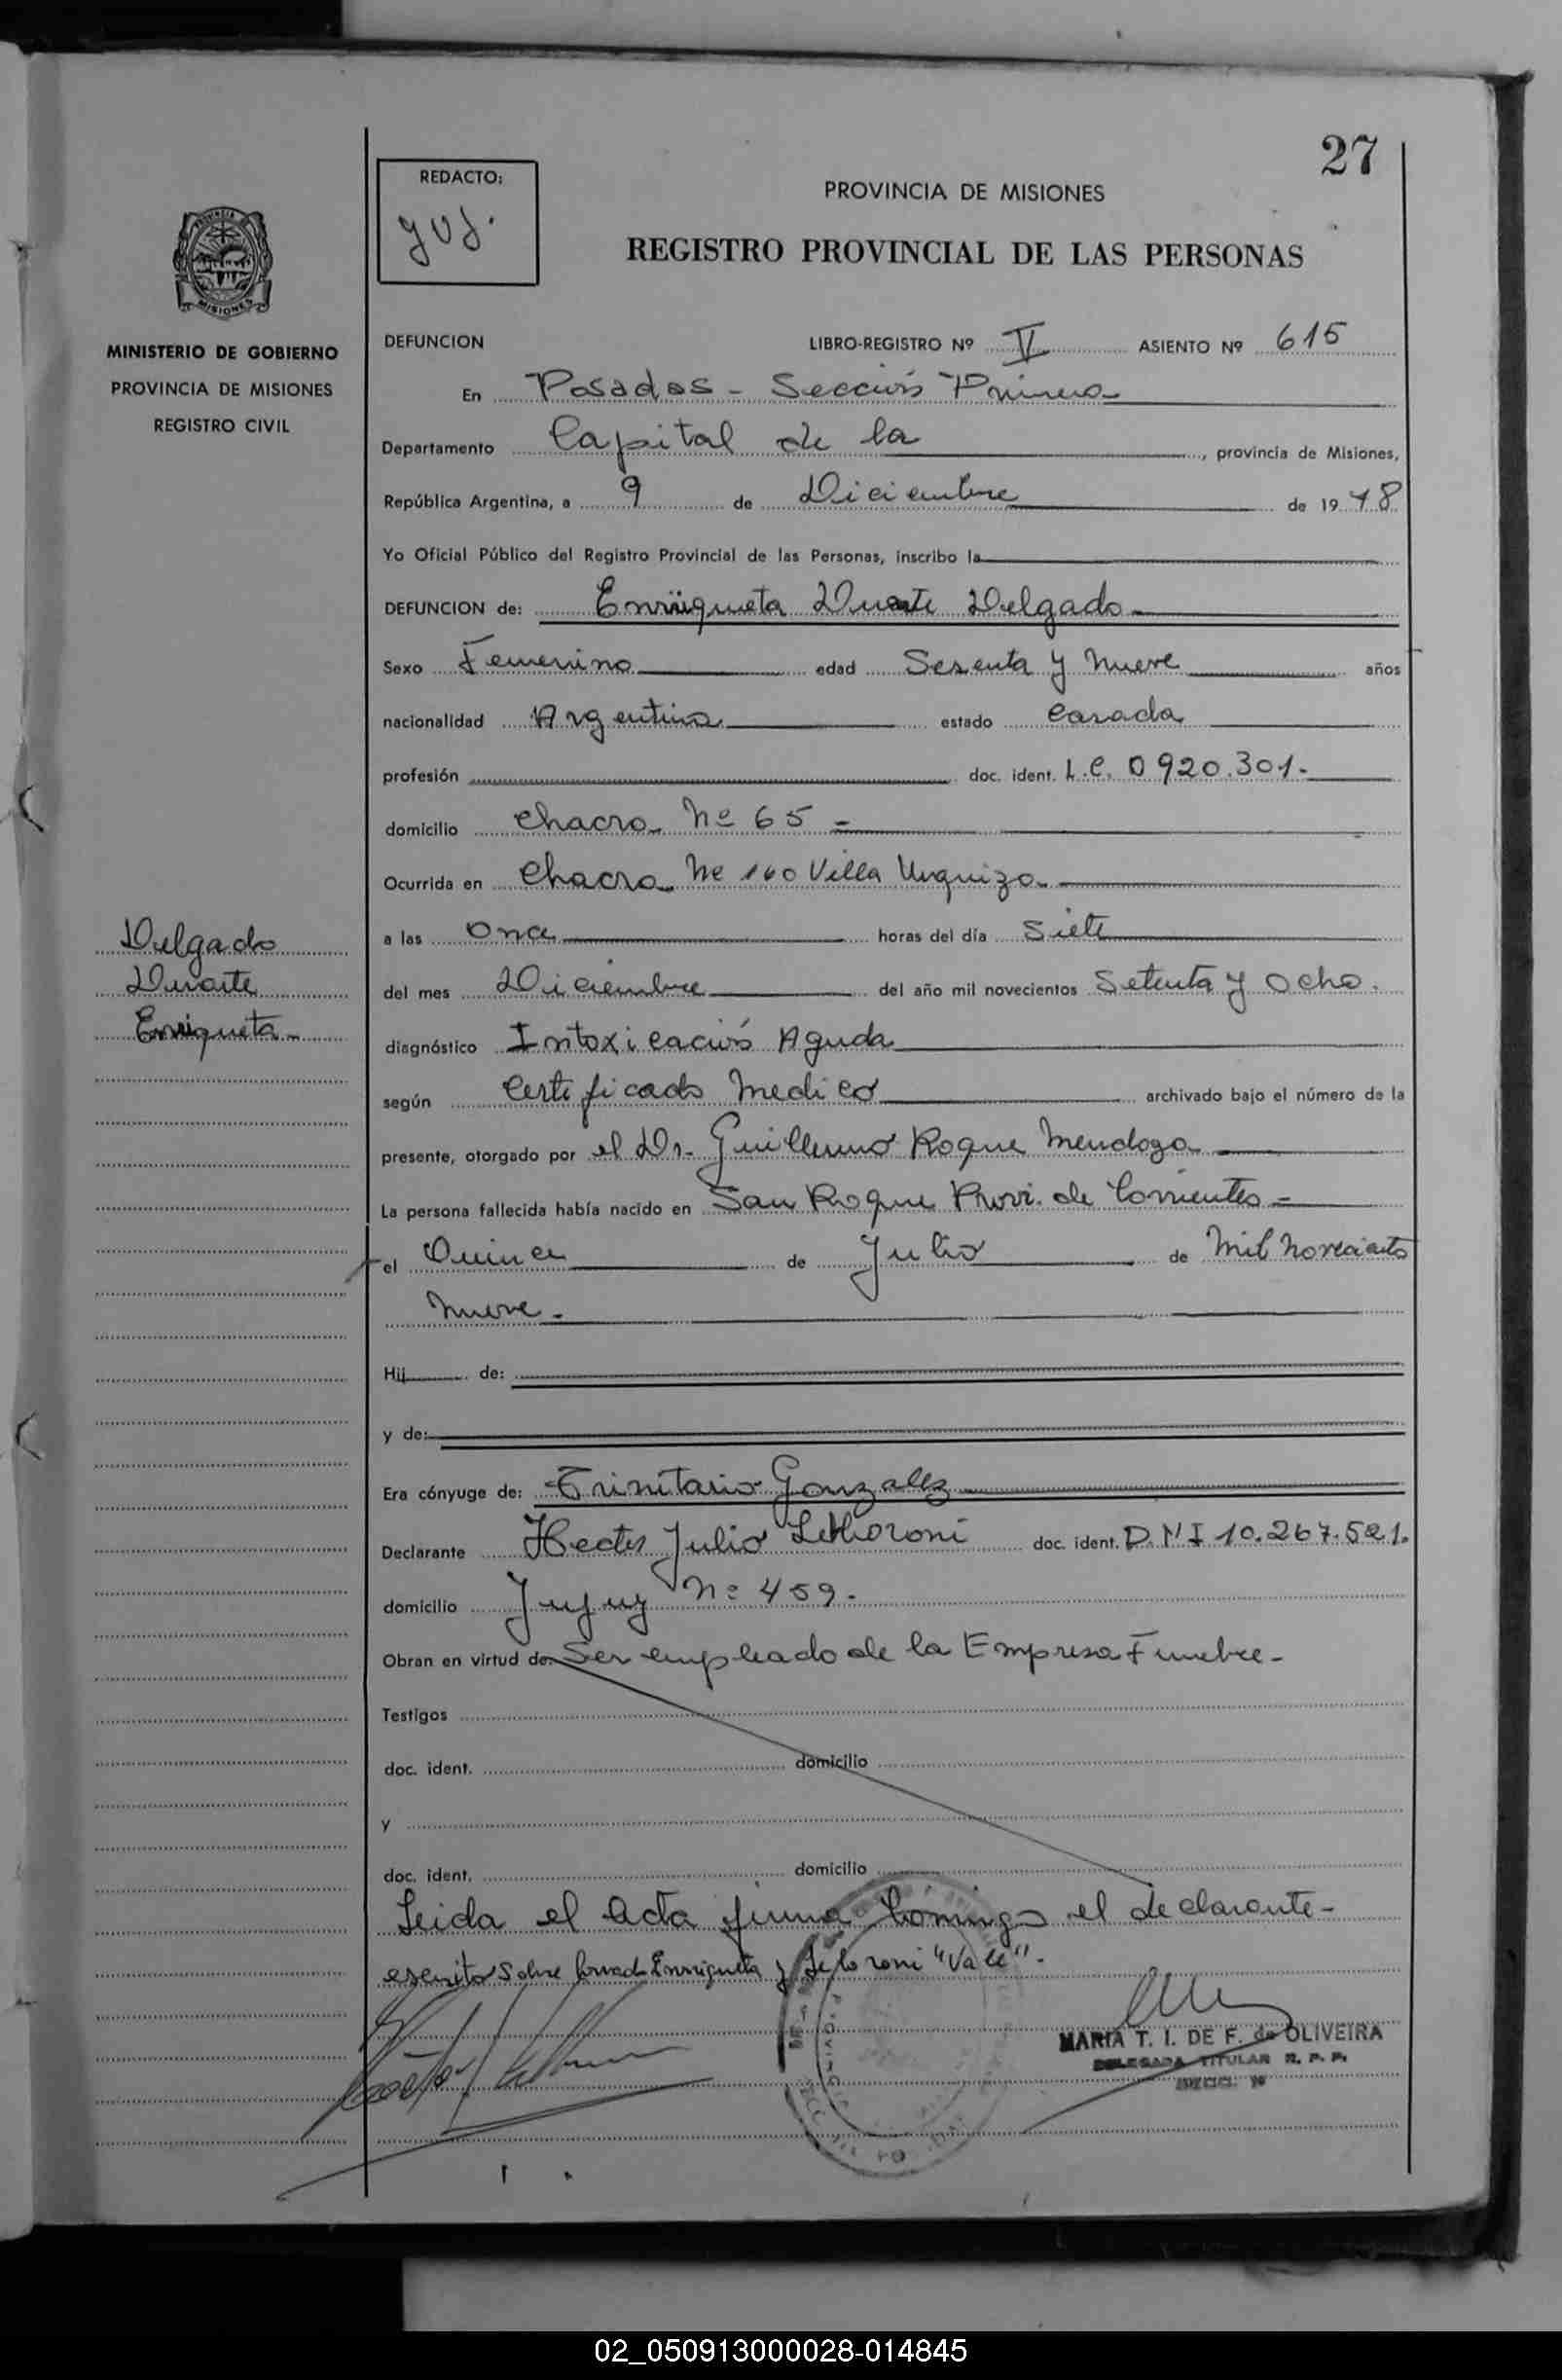 27
REDACTO:
PROVINCIA DE MISIONES
REGISTRO PROVINCIAL DE LAS PERSONAS
MISIONES
MINISTERIO DE GOBIERNO
PROVINCIA DE MISIONES
REGISTRO CIVIL
DEFUNCION LIBRO-REGISTRO Nº V ASIENTO Nº 615
En Posadas - Sección Primera
Departamento Capital de la, provincia de Misiones,
República Argentina, a 9 de Diciembre de 19 78
Yo Oficial Público del Registro Provincial de las Personas, inscribo la
DEFUNCION de: Enriqueta Duarte Delgado
Sexo Femenino edad Sesenta y nueve años
nacionalidad Argentina estado Casada
profesión doc. ident. L.C. 0920.301.
domicilio Chacra Nº 65 -
Ocurrida en Chacra Nº 160 Villa Urquiza
a las Once horas del día Siete
del mes Diciembre del año mil novecientos Setenta y Ocho.
Delgado
Duarte
Enriqueta -
diagnóstico Intoxicación Aguda
según Certificado Medico archivado bajo el número de la
presente, otorgado por el Dr. Guillermo Roque Mendoza
La persona fallecida había nacido en San Roque Provi. de Corrientes -
el Quince de Julio de Mil novecientos
nueve -
Hij de:
y de:
Era cónyuge de: Trinitario Gonzalez
Declarante Hector Julio doc. ident. D.N.I 10.267.521.
domicilio Jujuy Nº 459.
Obran en virtud de: Ser empleado de la Empresa Funebre -
Testigos
doc. ident. domicilio
y
doc. ident. domicilio
Leida el Acta firma Comingo el declarante -
escrito Sobre Enriqueta y "Vale" -
MARIA T. I. DE F. de OLIVEIRA
DELEGADA TITULAR R. P. P.
02_050913000028-014845